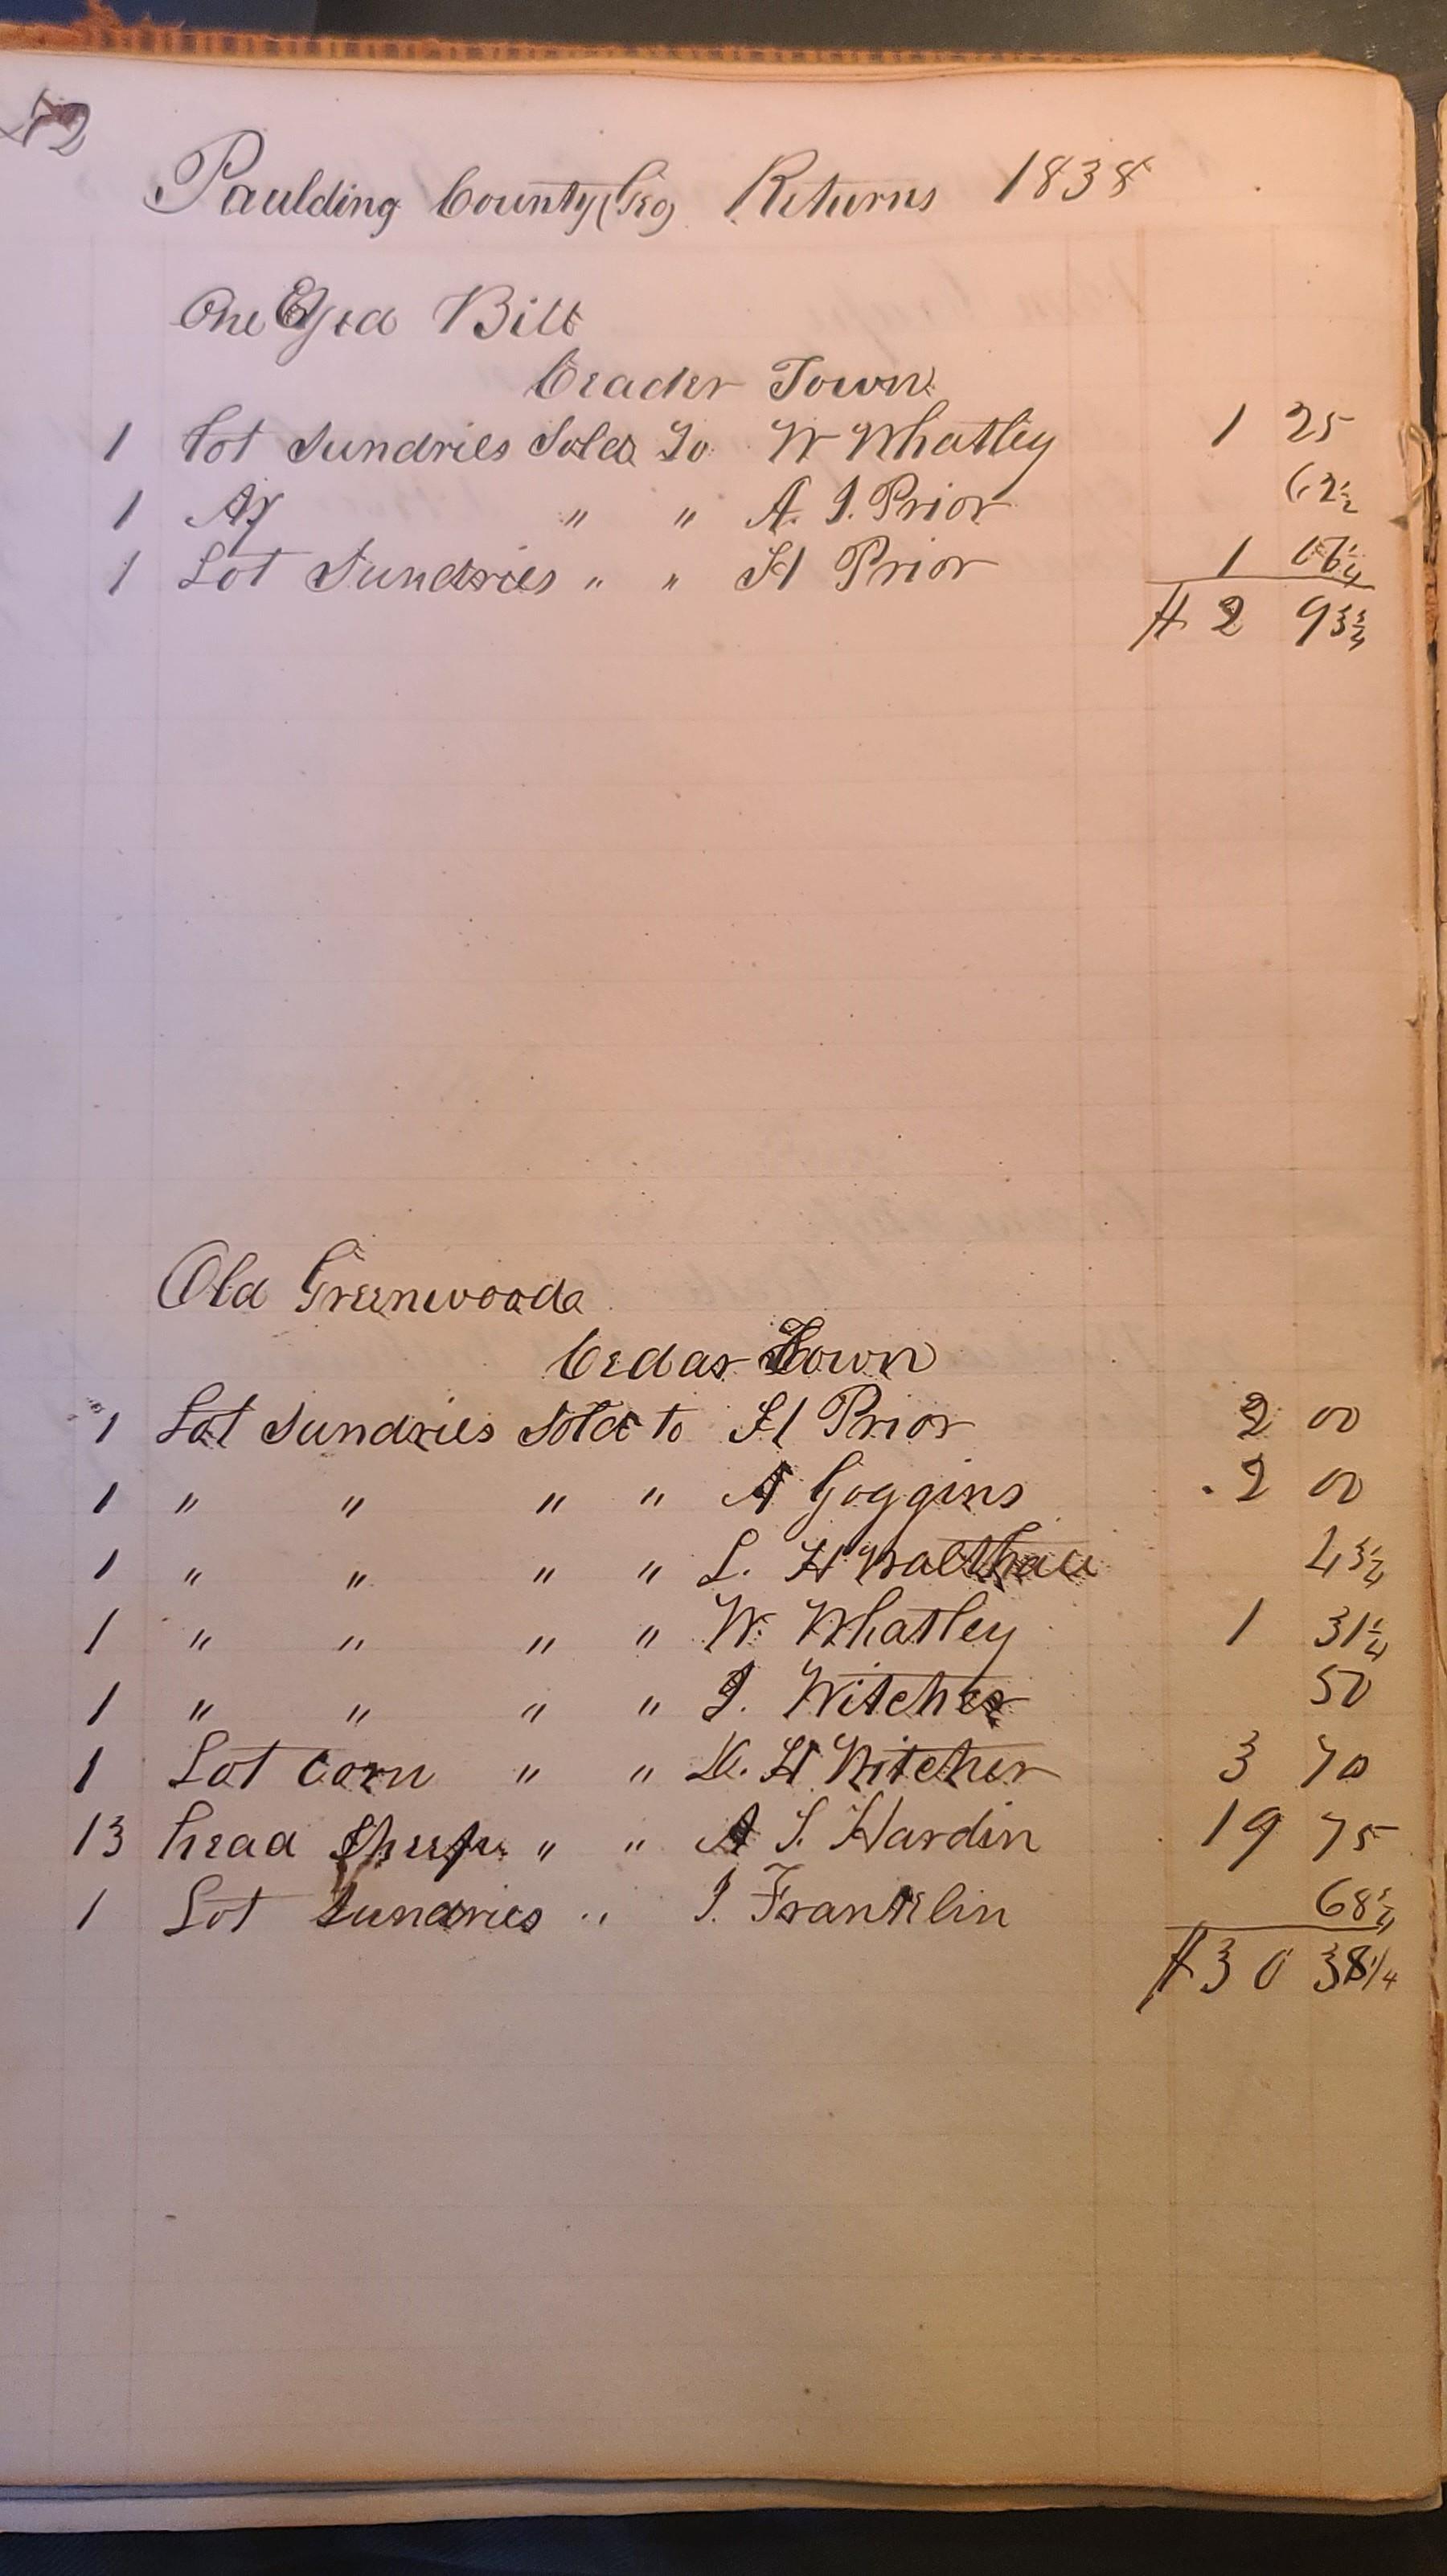 42
Paulding County (Geo) Returns 1838
One Eyed Bill
Ceader Town
1 Lot Sundries Sold To W Whatley 1 25
1 Ax " " A. J. Prior 62½
1 Lot Sundries " " H Prior 1 06¼
$ 2 93¾
Old Greenwood
Cedar Town
1 Lot Sundries Sold to H Prior 2 00
1 " " " " A Goggins 2 00
1 " " " " L. H Walthall 43¾
1 " " " " W. Whatley 1 31¼
1 " " " " J. Witcher 50
1 Lot Corn " " K. H Witcher 3 70
13 head Sheep " " A S. Hardin 19 75
1 Lot Sundries " J. Franklin 68¾
$30 38¼